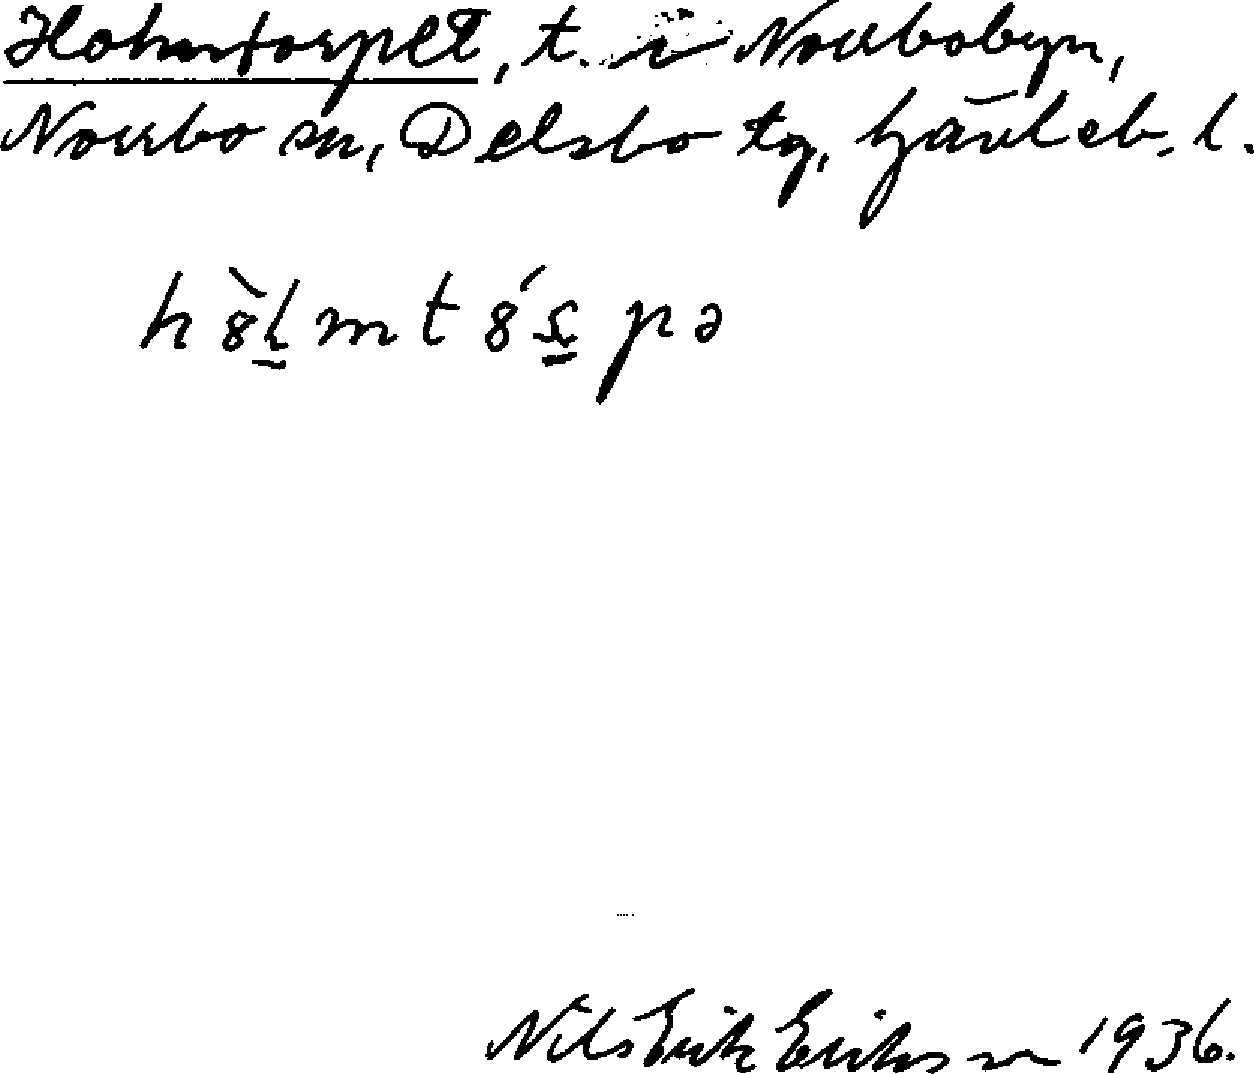 Holmtorpet, t. i Norrbobyn,
Norrbo sn, Delsbo tg, Gävleb. l.
h8̀l̠mt8́s̳pə
Nils Erik Eriksson 1936.